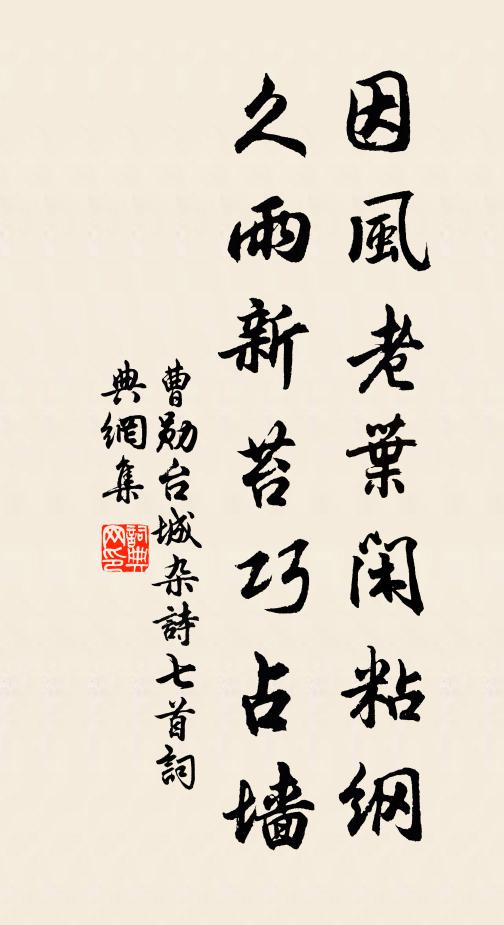 因風老葉閑粘網
久雨新苔巧占墙
曹勛台城杂詩七首詞
典網集
詞典
网印